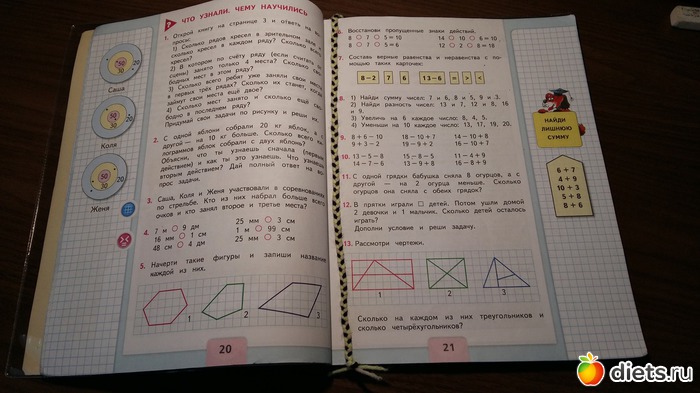 ЧТО УЗНАЛИ. ЧЕМУ НАУЧИЛИСЬ
1. Открой книгу на странице 3 и ответь на во-
просы:
1) Сколько рядов кресел в зрительном зале
сколько кресел в каждом ряду? Сколько всего
кресел?
2) В котором по счёту ряду (если считать
сцены) занято только 4 места? Сколько сво-
бодных мест в этом ряду?
3) Сколько всего ребят уже заняли свои места
в первых трёх рядах? Сколько их станет, когда
займут свои места ещё двое?
4) Сколько мест занято и сколько ещё сво-
бодно в последнем ряду?
Придумай свои задачи по рисунку и реши их.
2. С одной яблони собрали 20 кг яблок, а с
другой — на 10 кг больше. Сколько всего ки-
лограммов яблок собрали с двух яблонь?
Объясни, что ты узнаешь сначала (первым
действием) и как ты это узнаешь. Что узнаешь
вторым действием? Дай полный ответ на во-
прос задачи.
3. Саша, Коля и Женя участвовали в соревнованиях
по стрельбе. Кто из них набрал больше всего
очков и кто занял второе и третье места?
4. 7 м ○ 9 дм 25 мм ○ 3 см
16 мм ○ 1 см 1 м ○ 99 см
48 см ○ 4 дм 25 мм ○ 3 см
5. Начерти такие фигуры и запиши название
каждой из них.
1 2 3
50 30 20
Саша
50 30 20
Коля
50 30 20
Женя
20
6. Восстанови пропущенные знаки действий.
8 ○ 7 ○ 5 = 10 14 ○ 10 ○ 6 = 10
8 ○ 7 ○ 5 = 6 12 ○ 2 ○ 8 = 18
7. Составь верные равенства и неравенства с по-
мощью таких карточек:
8−2 7 6 13−6 = > <
8. 1) Найди сумму чисел: 7 и 6, 8 и 5, 9 и 3.
2) Найди разность чисел: 13 и 7, 12 и 8, 16
и 9.
3) Увеличь на 6 каждое число: 8, 4, 5.
4) Уменьши на 10 каждое число: 13, 17, 19, 20.
9. 8+6−10 18−10+7 14−10+8
9+3−2 19−9+2 16−10+7
10. 13−5−8 15−8−5 11−4+9
14−7−6 13−9+8 16−8+9
11. С одной грядки бабушка сняла 8 огурцов, а с
другой — на 2 огурца меньше. Сколько
огурцов она сняла с обеих грядок?
12. В прятки играли □ детей. Потом ушли домой
2 девочки и 1 мальчик. Сколько детей осталось
играть?
Дополни условие и реши задачу.
13. Рассмотри чертежи.
1 2 3
Сколько на каждом из них треугольников и
сколько четырёхугольников?
21
НАЙДИ
ЛИШНЮЮ
СУММУ
6+7
4+9
10+3
5+8
8+6
diets.ru